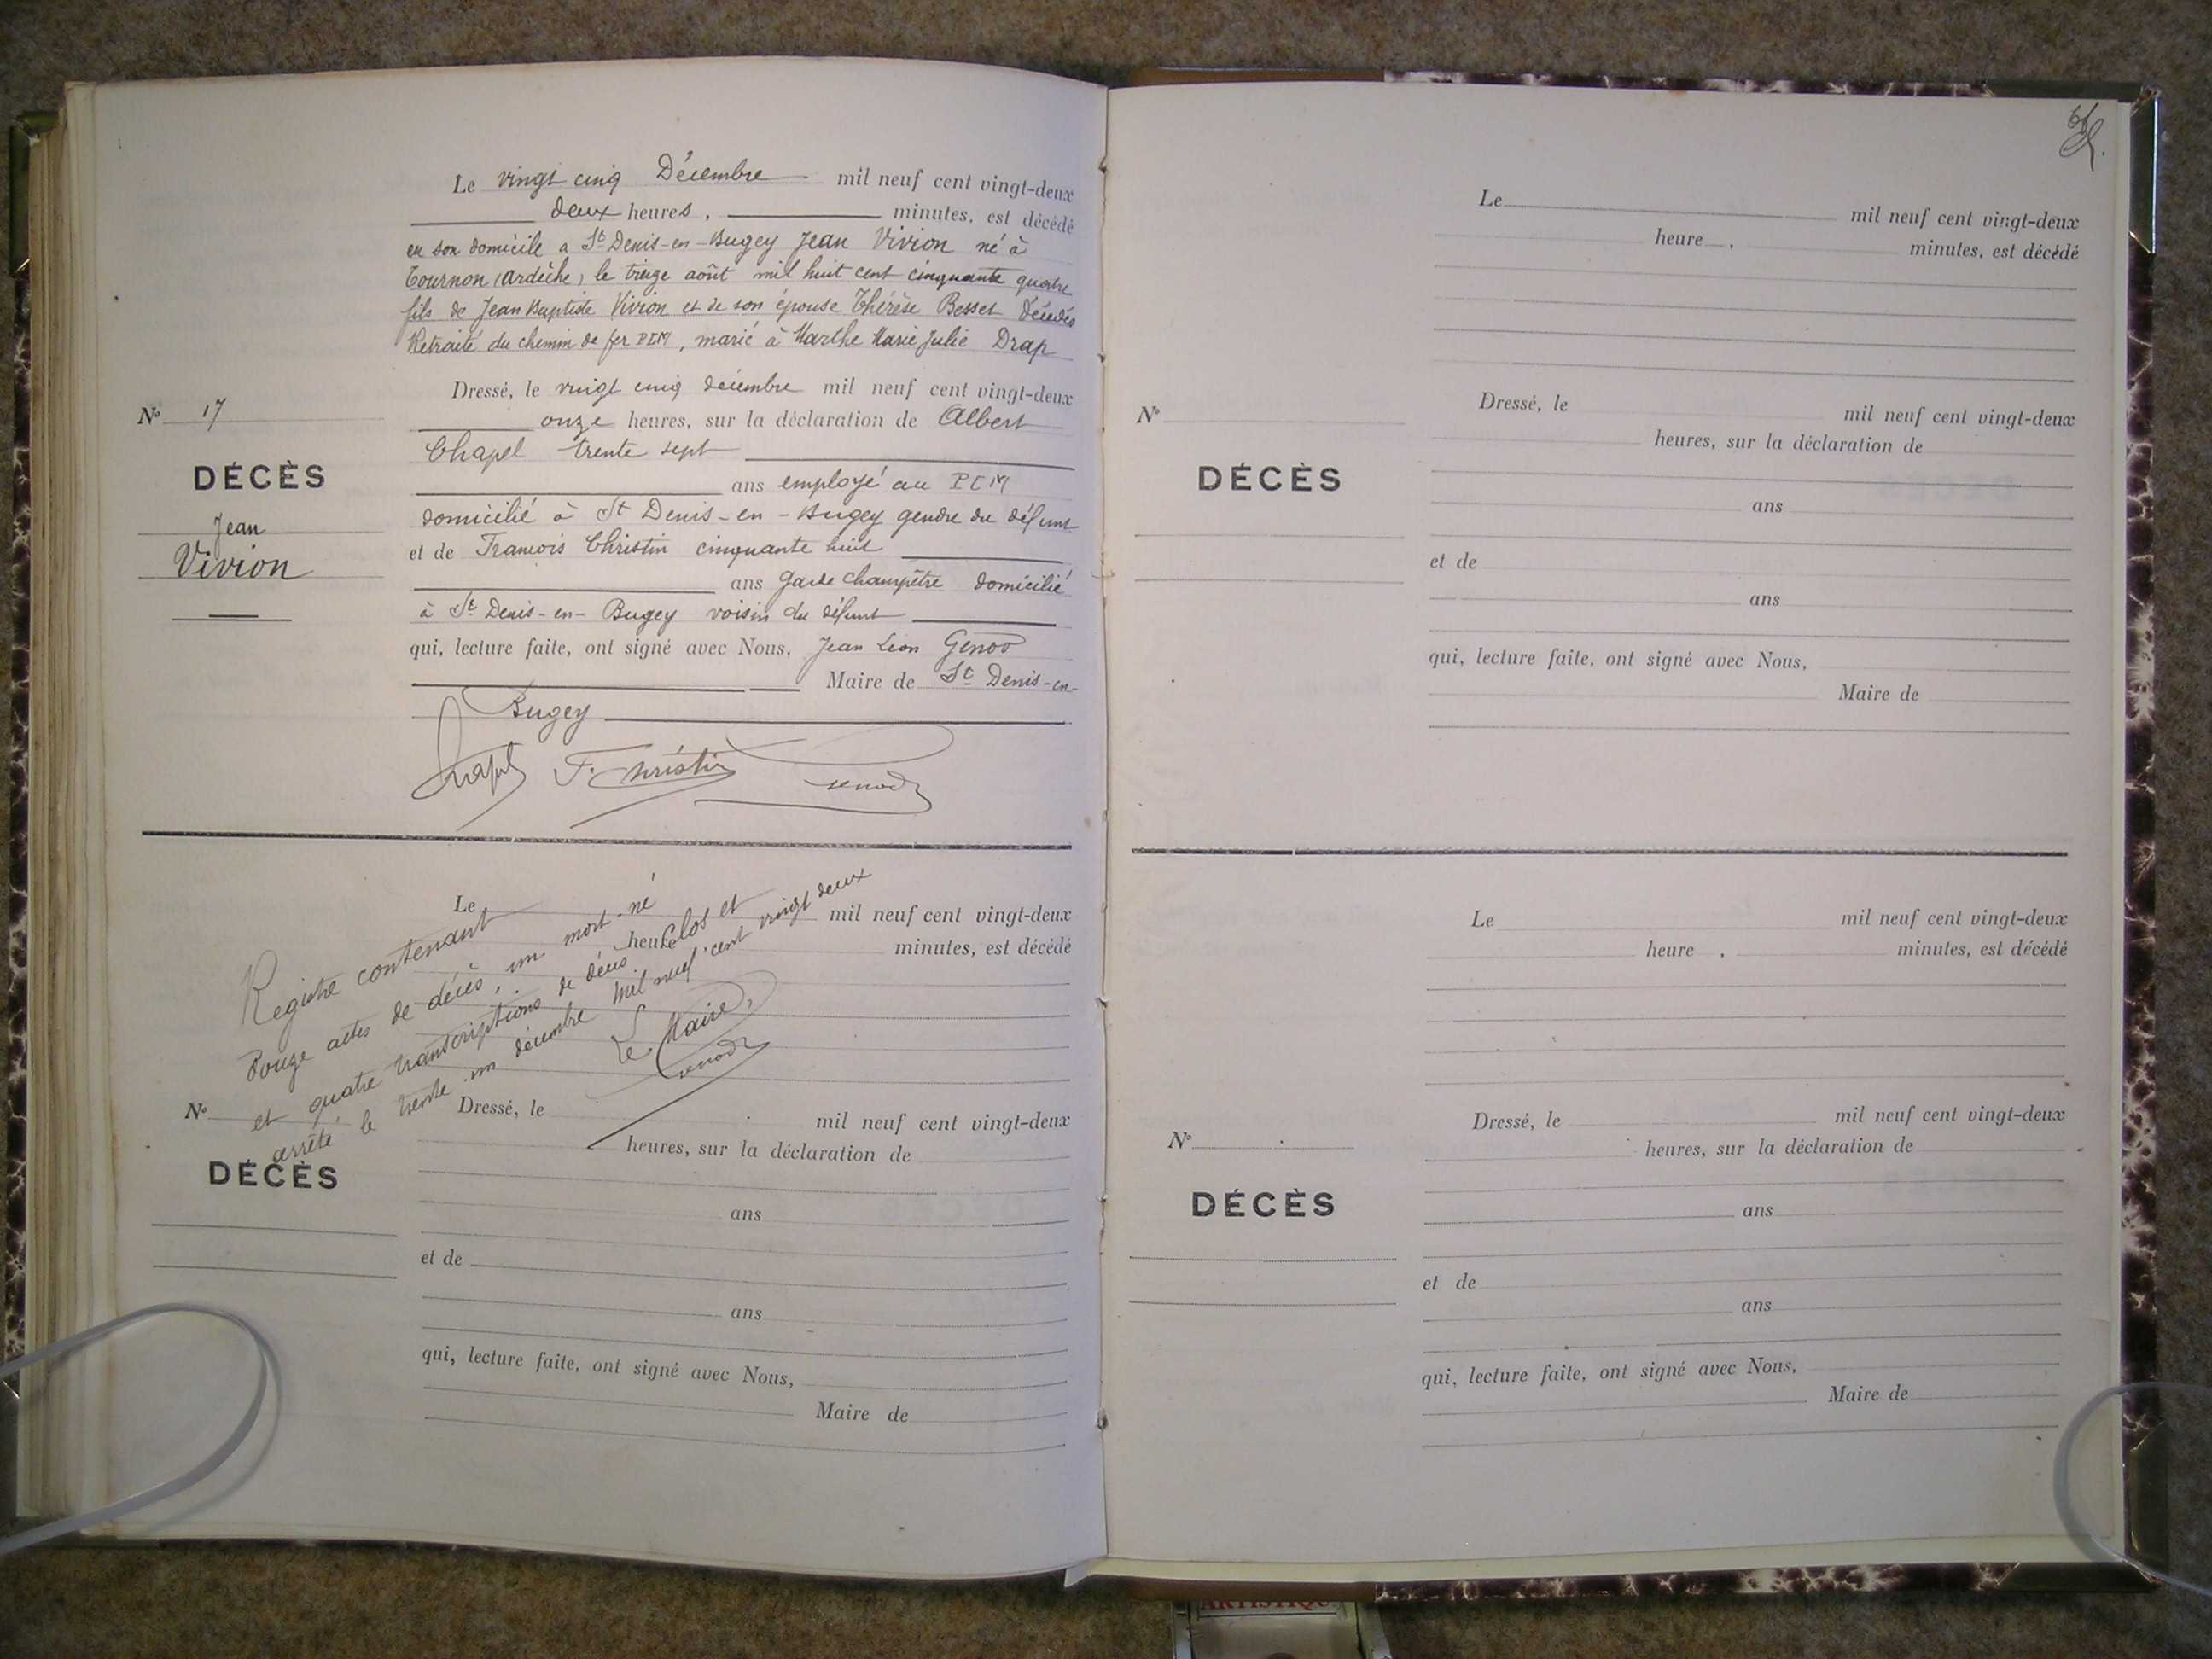 Le vingt cinq Décembre mil neuf cent vingt-deux
deux heures, minutes, est décédé
en son domicile a St Denis-en-Bugey Jean Vivion né à
Tournon (Ardèche) le treize août mil huit cent cinquante quatre
fils de Jean Baptiste Vivion et de son épouse Thérèse Besset décédés
Retraité du chemin de fer PLM, marié à Marthe Marie Julie Drap
Dressé, le vingt cinq décembre mil neuf cent vingt-deux
onze heures, sur la déclaration de Albert
Chapel trente sept
ans employé au PLM
domicilié à St Denis-en-Bugey gendre du défunt
et de François Christin cinquante huit
ans garde champêtre domicilié
à St Denis-en-Bugey voisin du défunt
qui, lecture faite, ont signé avec Nous, Jean Léon Genod
Maire de St Denis-en-
Bugey
Chapel F. Christin Genod
N° 17
DÉCÈS
Jean
Vivion
Le mil neuf cent vingt-deux
heure minutes, est décédé
Registre contenant
douze actes de décès, un mort-né
et quatre transcriptions de décès clos et
arrêté le trente un décembre mil neuf cent vingt deux
Le Maire,
Genod
N°
DÉCÈS
Dressé, le mil neuf cent vingt-deux
heures, sur la déclaration de
ans
et de
ans
qui, lecture faite, ont signé avec Nous,
Maire de
Le mil neuf cent vingt-deux
heure , minutes, est décédé
N°
DÉCÈS
Dressé, le mil neuf cent vingt-deux
heures, sur la déclaration de
ans
et de
ans
qui, lecture faite, ont signé avec Nous,
Maire de
Le mil neuf cent vingt-deux
heure , minutes, est décédé
N°
DÉCÈS
Dressé, le mil neuf cent vingt-deux
heures, sur la déclaration de
ans
et de
ans
qui, lecture faite, ont signé avec Nous,
Maire de